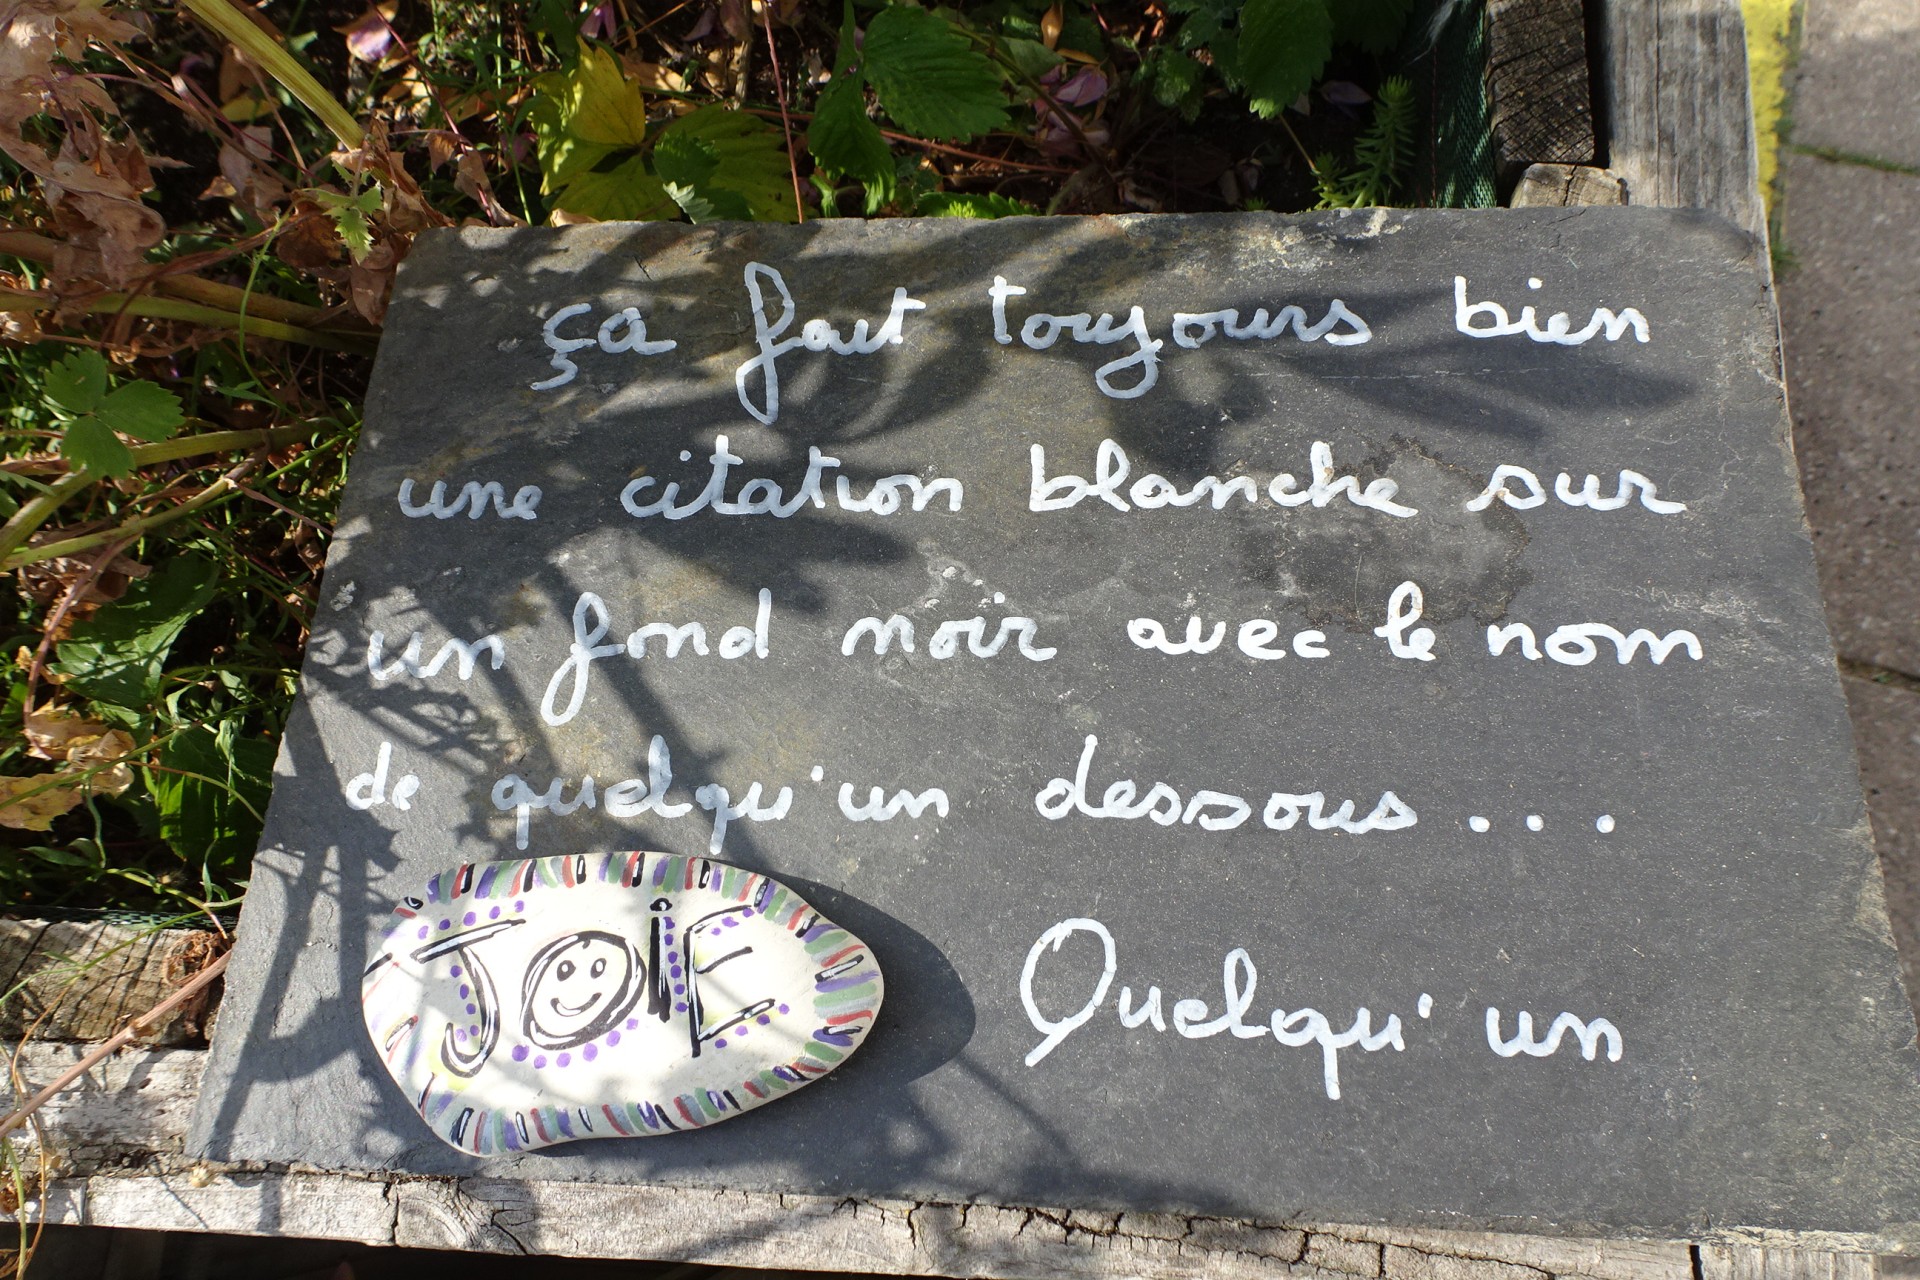 ça fait toujours bien
une citation blanche sur
un fond noir avec le nom
de quelqu'un dessous...
JOiE
Quelqu'un